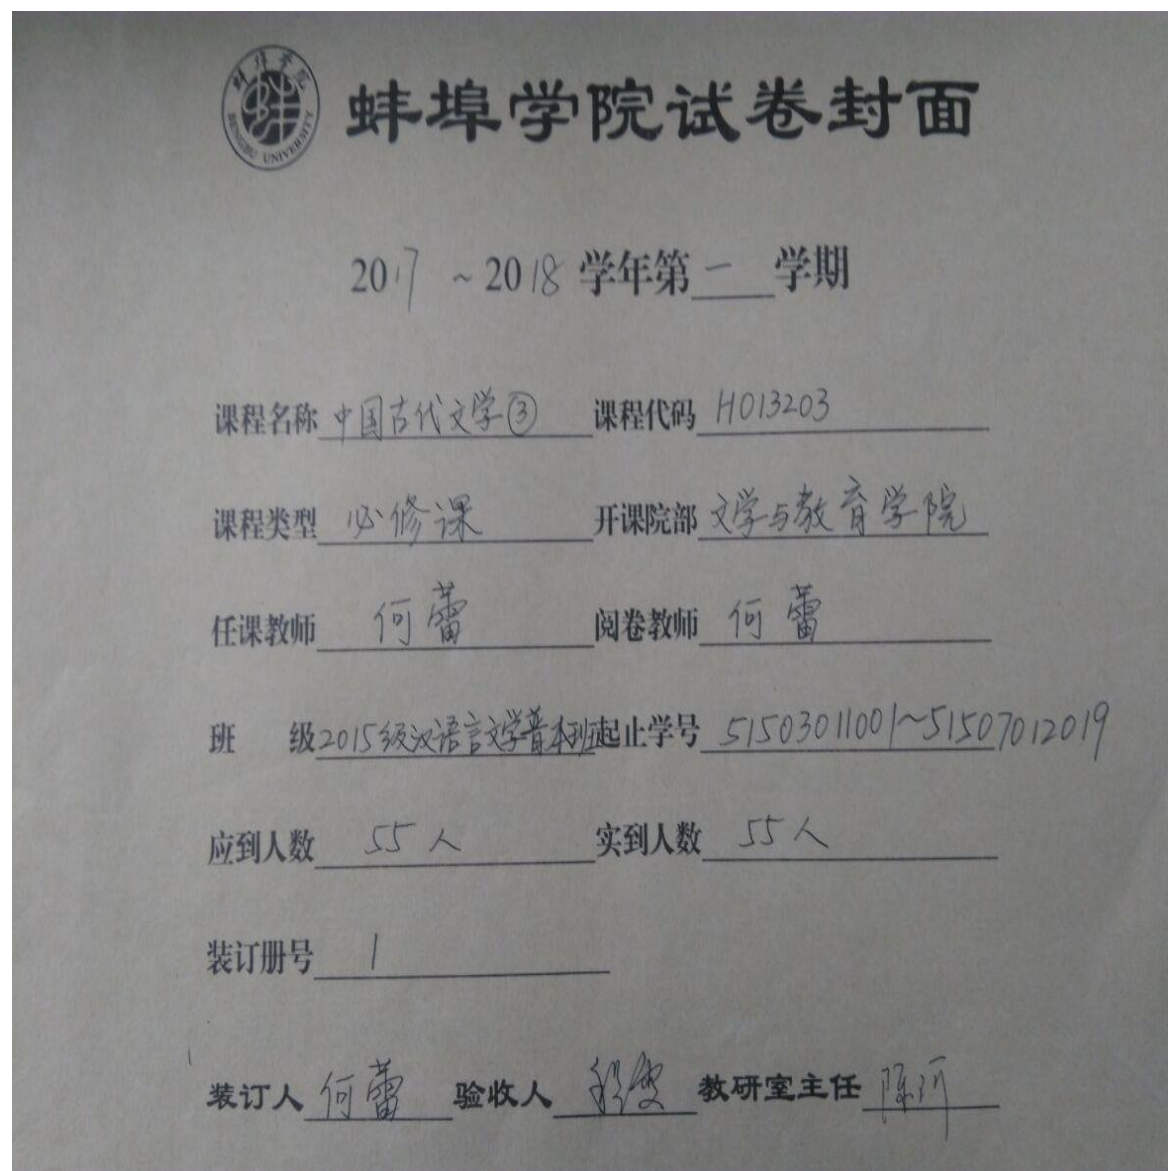 蚌埠学院
BENGBU UNIVERSITY
蚌埠学院试卷封面
2017 ~ 2018 学年第 一 学期
课程名称 中国古代文学③ 课程代码 H013203
课程类型 必修课 开课院部 文学与教育学院
任课教师 何蕾 阅卷教师 何蕾
班 级 2015级汉语言文学普本班 起止学号 51503011001~51507012019
应到人数 55人 实到人数 55人
装订册号 1
装订人 何蕾 验收人 教研室主任